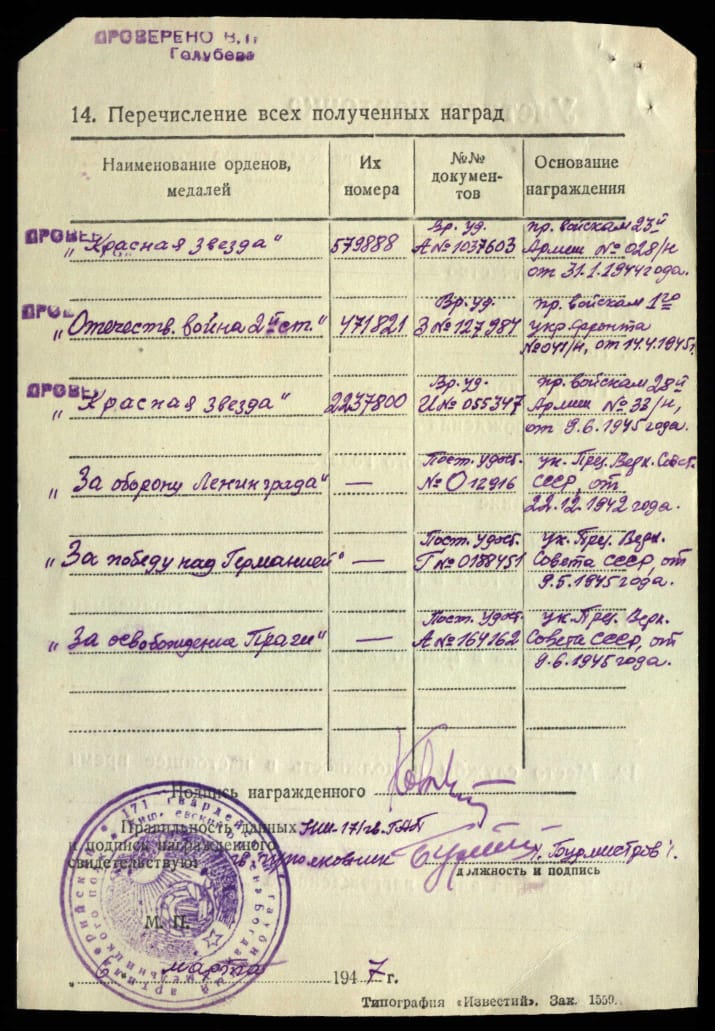 ПРОВЕРЕНО В.П
Голубева
14. Перечисление всех полученных наград
Наименование орденов, медалей
Их номера
№№ документов
Основание награждения
ПРОВЕ
„Красная звезда" 579888 Вр. уд. А№1037603 пр. войскам 23й Армии №028/н от 31.1.1944 года.
ПРОВ
„Отечеств. война 2й ст." 471821 Вр. уд. З №127984 пр. войскам 1го укр. фронта №041/н, от 14.4.1945г.
ПРОВЕР
„Красная звезда" 2237800 Вр. уд. И№ 055347 пр. войскам 28й Армии №33/н, от 9.6.1945 года.
„За оборону Ленинграда" — Пост. удост. №О12916 ук. През. Верх. Совет. СССР, от 22.12.1942 года.
„За победу над Германией" — Пост. удост. Г№0188451 ук. През. Верх. Совета СССР, от 9.5.1945 года.
„За освобождение Праги" — Пост. удост. А№164162 ук. През. Верх. Совета СССР, от 9.6.1945 года.
Подпись награжденного
Правильность данных НШ 171 гв. ГАП
и подпись награжденного
свидетельствую гв. подполковник Бурмистров
должность и подпись
М. П.
„6" марта 1947 г.
Типография «Известий». Зак. 1559.